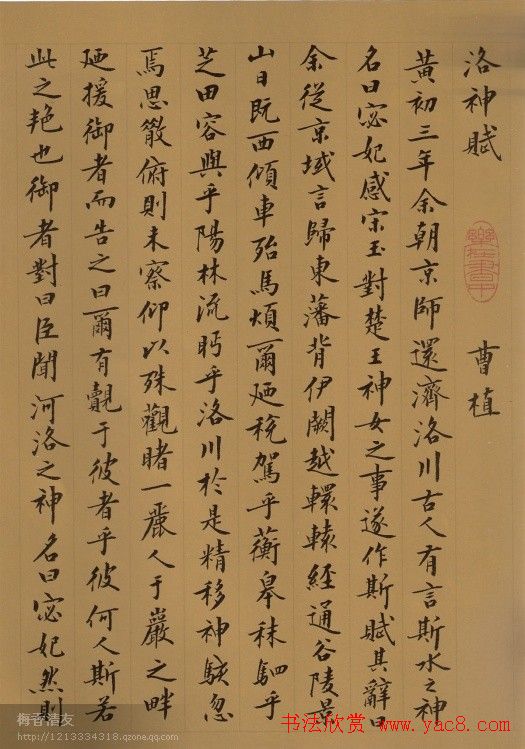 洛神賦 曹植
黃初三年余朝京師還濟洛川古人有言斯水之神
名曰宓妃感宋玉對楚王神女之事遂作斯賦其辭曰
余從京域言歸東藩背伊闕越轘轅經通谷陵景
山日既西傾車殆馬煩爾廼稅駕乎蘅皋秣駟乎
芝田容與乎陽林流眄乎洛川於是精移神駭忽
焉思散俯則未察仰以殊觀睹一麗人于巖之畔
廼援御者而告之曰爾有覿于彼者乎彼何人斯若
此之艷也御者對曰臣聞河洛之神名曰宓妃然則
梅香清友
http://1213334318.qzone.qq.com
书法欣赏 www.yac8.com